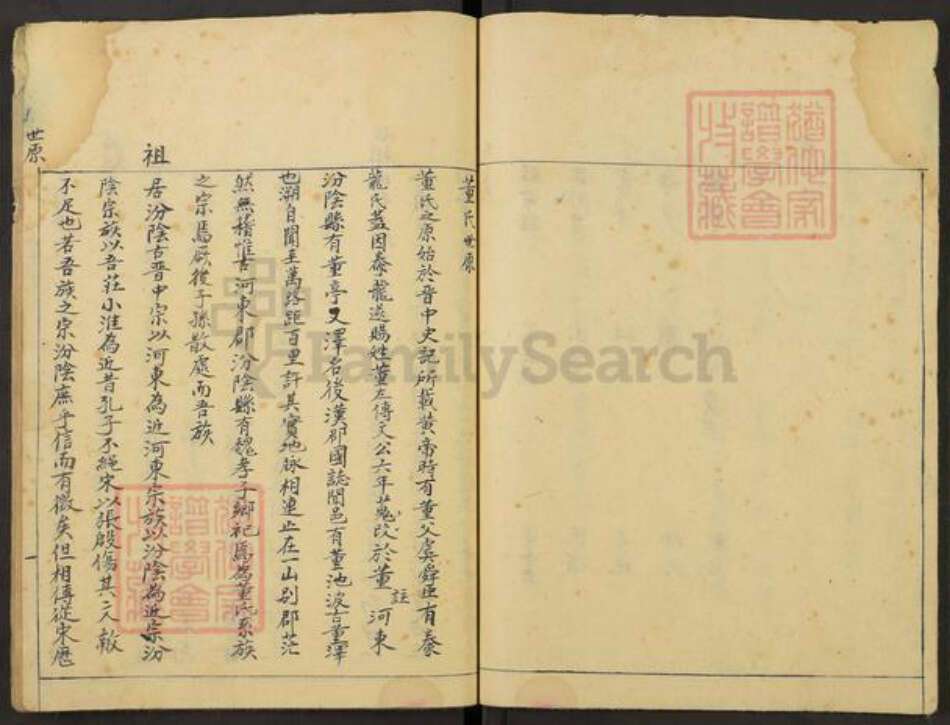 董氏世原
董氏之原始於晋中史記所載黃帝時有董父虞舜臣有豢
龍氏蓋因豢龍遂賜姓董左傳文公六年蒐改於董註河東
汾陰縣有董亭又澤名後漢郡國誌聞邑有董池陂古董澤
也溯自聞至萬路距百里許其實地脉相連止在一山别郡茫
然無稽惟古河東郡汾陰縣有魏孝子鄉祀焉為董氏系族
之宗焉厥後子孫散處而吾族
祖居汾陰古晋中宗以河東為近河東宗族以汾陰為近宗汾
陰宗族以吾莊小淮為近昔孔子不絕宋以張殷傷其文
不足也若吾族之宗汾陰庶乎信而有徵矣但相傳從宋歷
世原
FamilySearch
譜學會
收藏